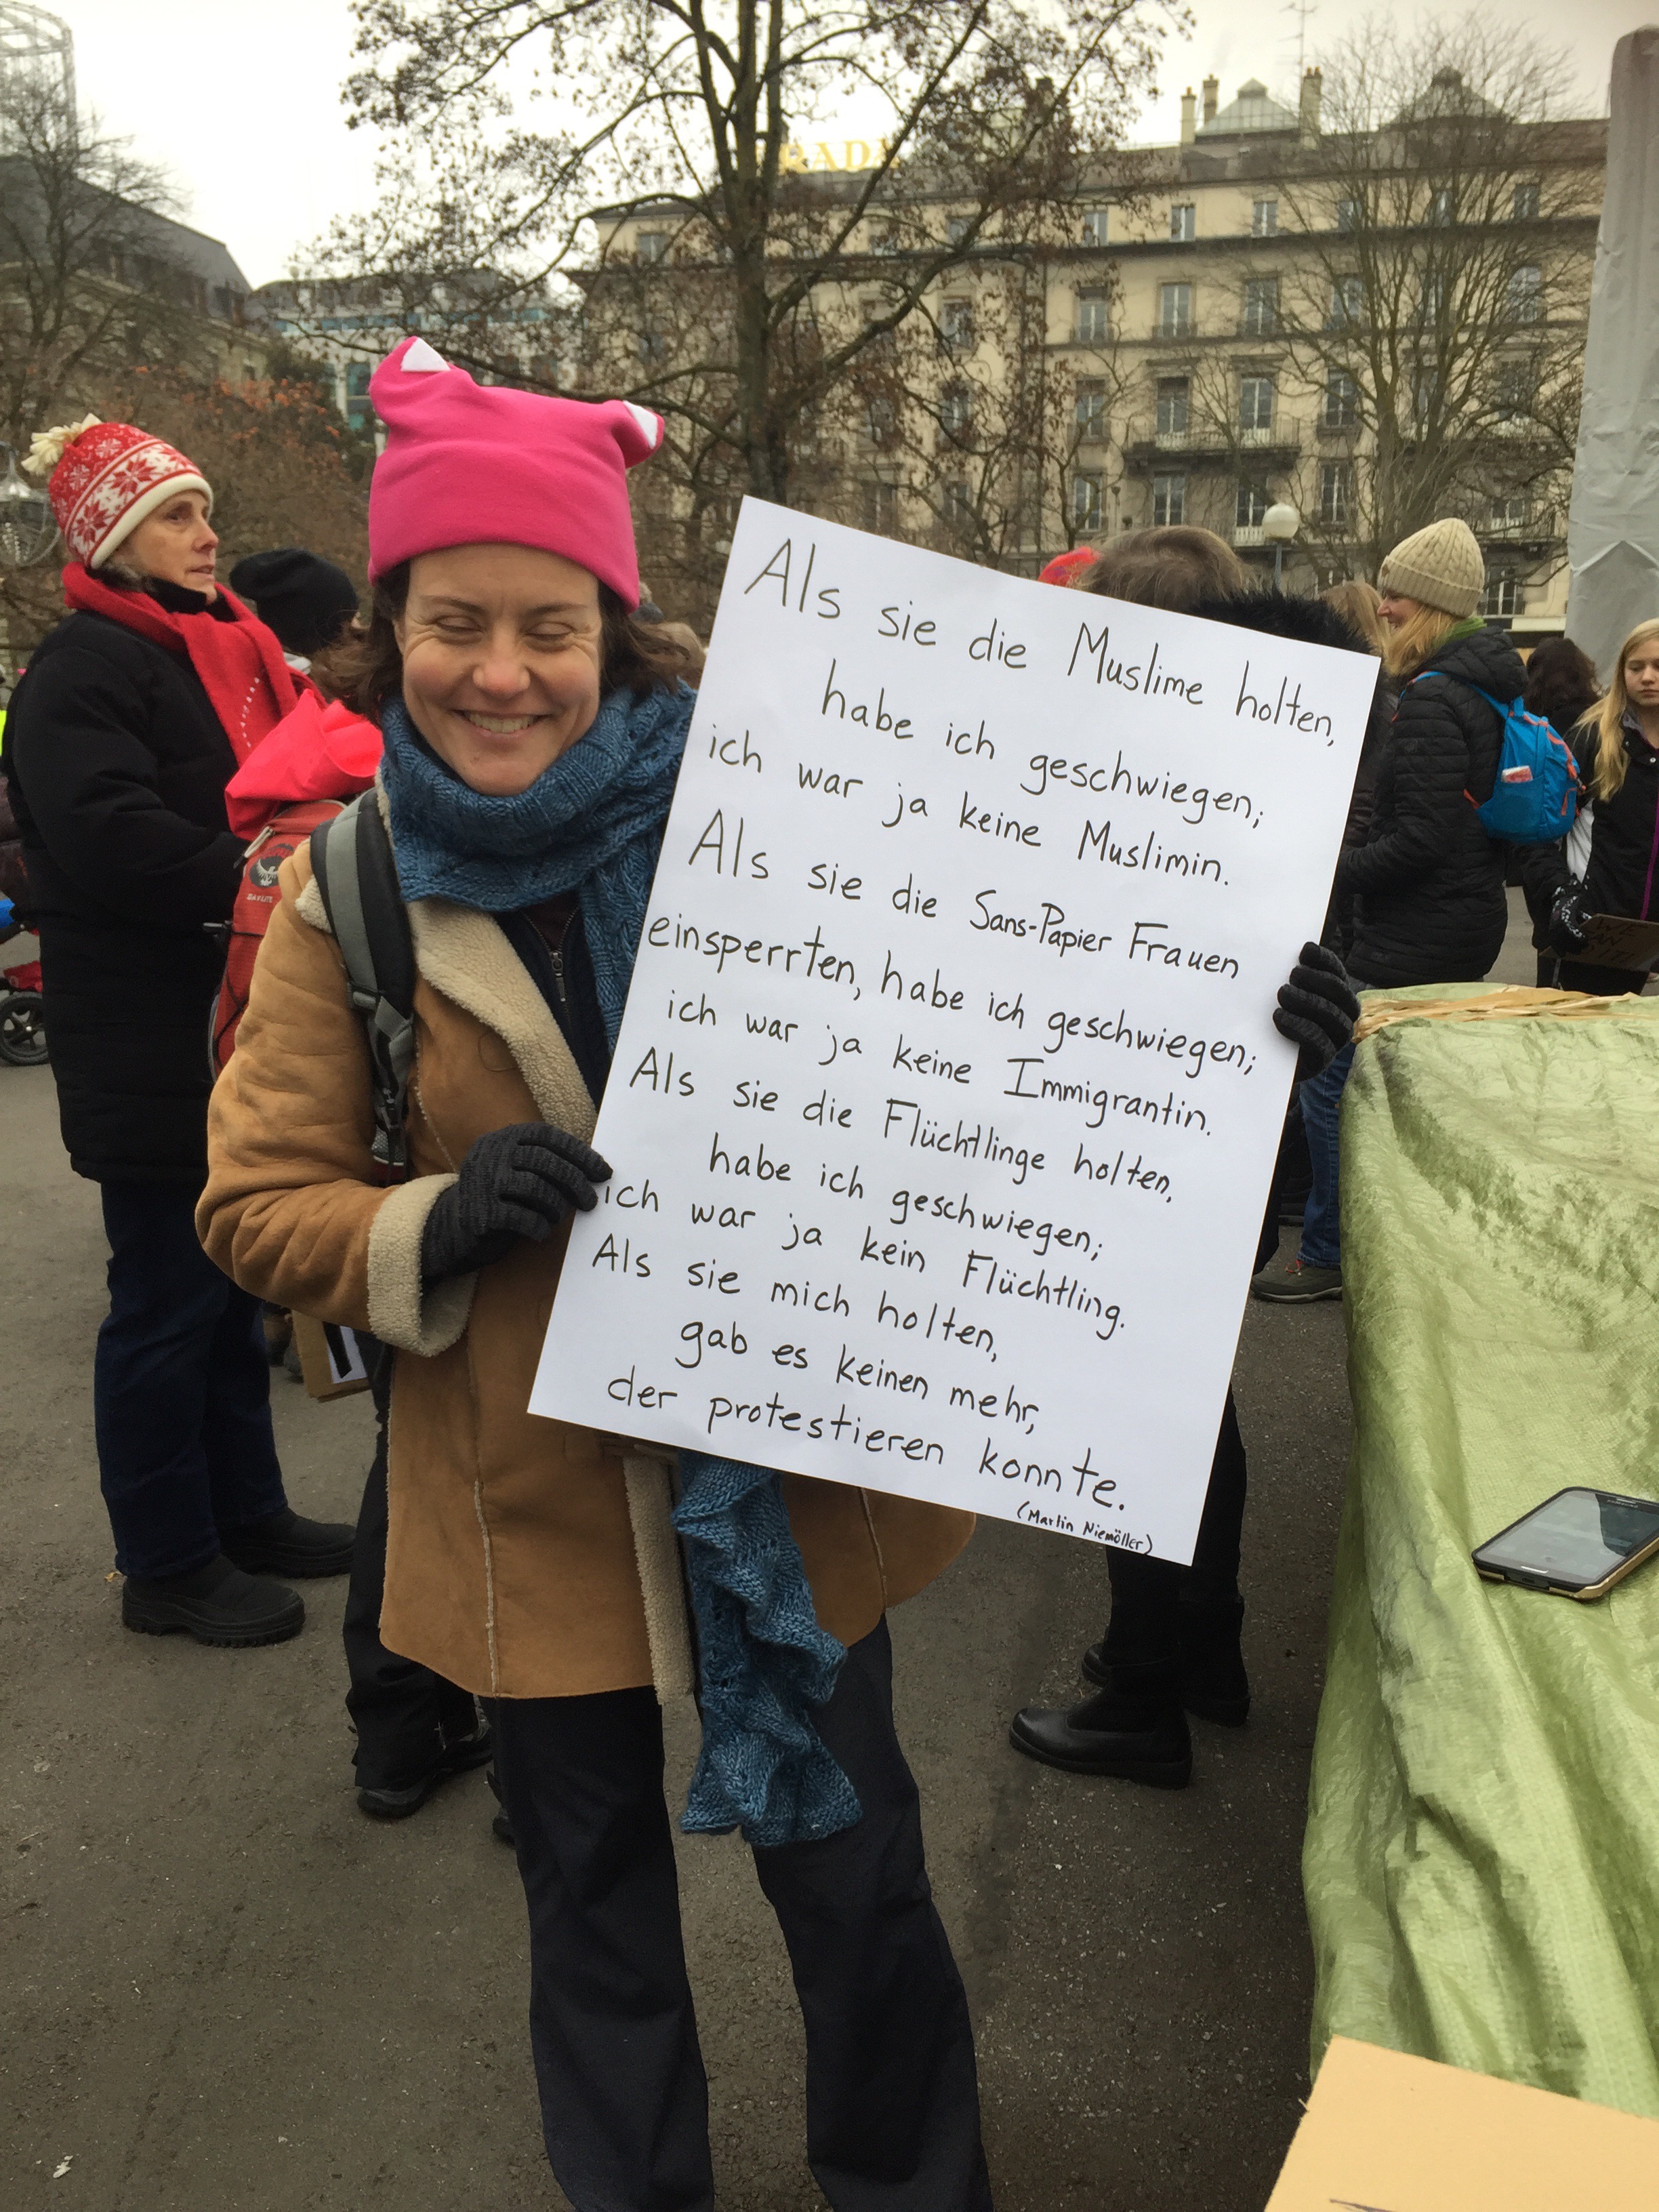 Als sie die Muslime holten,
habe ich geschwiegen;
ich war ja keine Muslimin.
Als sie die Sans-Papier Frauen
einsperrten, habe ich geschwiegen;
ich war ja keine Immigrantin.
Als sie die Flüchtlinge holten,
habe ich geschwiegen;
ich war ja kein Flüchtling.
Als sie mich holten,
gab es keinen mehr,
der protestieren konnte.
(Martin Niemöller)